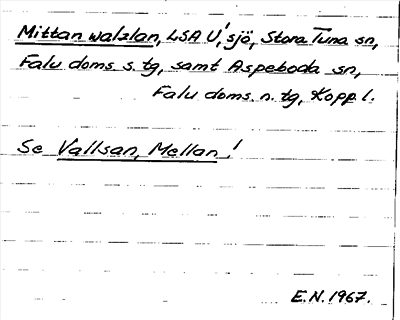 Mittan walzlan, LSA U!, sjö, Stora Tuna sn,
Falu doms. s. tg, samt Aspeboda sn,
Falu doms. n. tg, Kopp. l.
Se Vallsan, Mellan!
E.N. 1967.